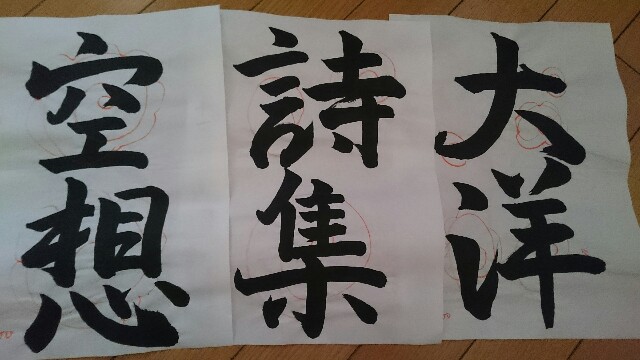 大洋
詩集
空想